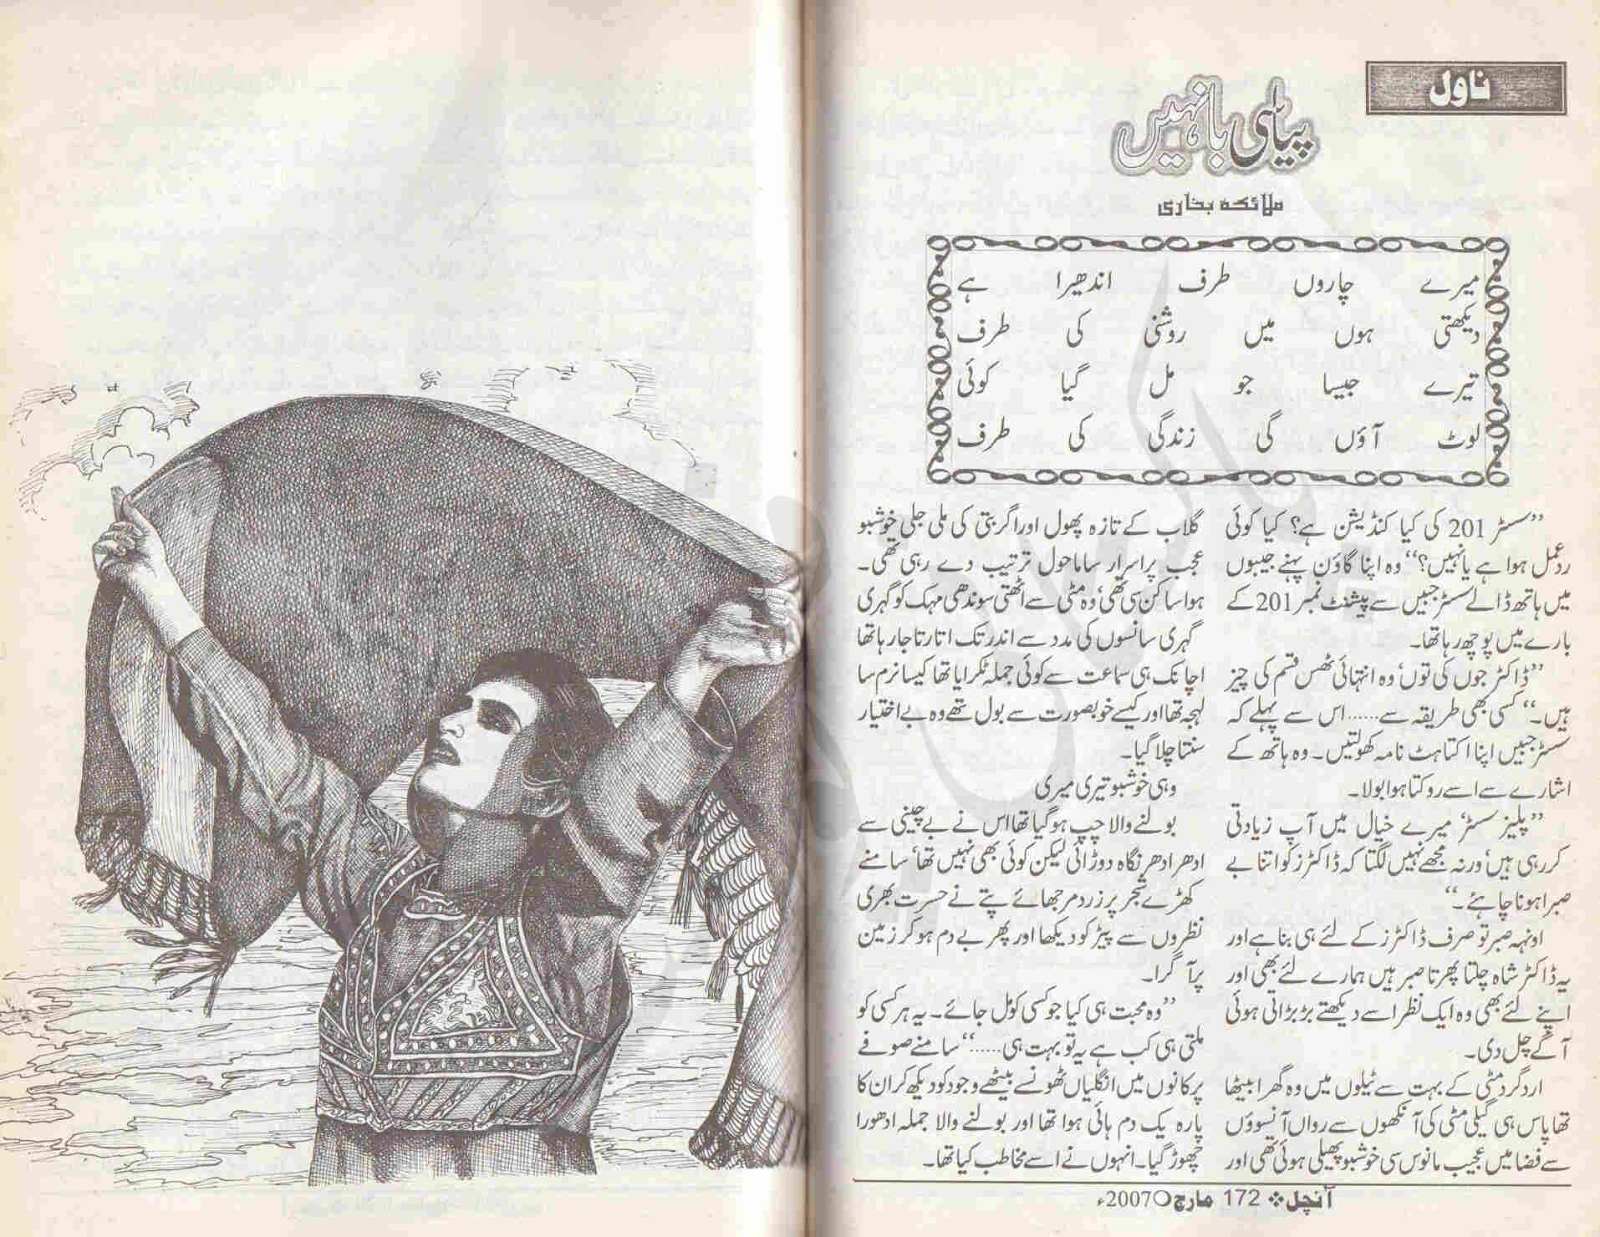 ناول
پیاسی بانہیں
ملائکہ بخاری
میرے چاروں طرف اندھیرا ہے
دیکھتی ہوں میں روشنی کی طرف
تیرے جیسا جو مل گیا کوئی
لوٹ آؤں گی زندگی کی طرف
”سسٹر 201 کی کیا کنڈیشن ہے؟ کیا کوئی
ردعمل ہوا ہے یا نہیں؟“ وہ اپنا گاؤن پہنے جیبوں
میں ہاتھ ڈالے سسٹر جبیں سے پیشنٹ نمبر 201 کے
بارے میں پوچھ رہا تھا۔
”ڈاکٹر جوں کی توں‘ وہ انتہائی ٹھس قسم کی چیز
ہیں۔“ کسی بھی طریقہ سے...... اس سے پہلے کہ
سسٹر جبیں اپنا اکتاہٹ نامہ کھولتیں۔ وہ ہاتھ کے
اشارے سے اسے روکتا ہوا بولا۔
”پلیز سسٹر‘ میرے خیال میں آپ زیادتی
کر رہی ہیں‘ ورنہ مجھے نہیں لگتا کہ ڈاکٹرز کو اتنا بے
صبرا ہونا چاہئے۔“
اونہہ صبر تو صرف ڈاکٹرز کے لئے ہی بنا ہے اور
یہ ڈاکٹر شاہ چلتا پھرتا صبر ہیں ہمارے لئے بھی اور
اپنے لئے بھی وہ ایک نظر اسے دیکھتے بڑبڑاتی ہوئی
آگے چل دی۔
اردگرد مٹی کے بہت سے ٹیلوں میں وہ گھرا بیٹھا
تھا پاس ہی گیلی مٹی کی آنکھوں سے رواں آنسوؤں
سے فضا میں عجیب مانوس سی خوشبو پھیلی ہوئی تھی اور
گلاب کے تازہ پھول اور اگربتی کی ملی جلی خوشبو
عجب پراسرار سا ماحول ترتیب دے رہی تھی۔
ہوا ساکن سی تھی‘ وہ مٹی سے اٹھتی سوندھی مہک کو گہری
گہری سانسوں کی مدد سے اندر تک اتارتا جا رہا تھا
اچانک ہی سماعت سے کوئی جملہ ٹکرایا تھا کیسا نرم سا
لہجہ تھا اور کیسے خوبصورت سے بول تھے وہ بے اختیار
سنتا چلا گیا۔
وہی خوشبو تیری میری
بولنے والا چپ ہو گیا تھا اس نے بے چینی سے
ادھر ادھر نگاہ دوڑائی لیکن کوئی بھی نہیں تھا‘ سامنے
کھڑے شجر پر زرد مرجھائے پتے نے حسرت بھری
نظروں سے پیڑ کو دیکھا اور پھر بے دم ہو کر زمین
پر آ گرا۔
”وہ محبت ہی کیا جو کسی کو مل جائے۔ یہ ہر کسی کو
ملتی ہی کب ہے یہ تو بہت ہی......“ سامنے صوفے
پر کانوں میں انگلیاں ٹھونسے بیٹھے وجود کو دیکھ کر ان کا
پارہ یک دم ہائی ہوا تھا اور بولنے والا جملہ ادھورا
چھوڑ گیا۔ انہوں نے اسے مخاطب کیا تھا۔
آنچل ❖ 172 مارچ ○ 2007ء